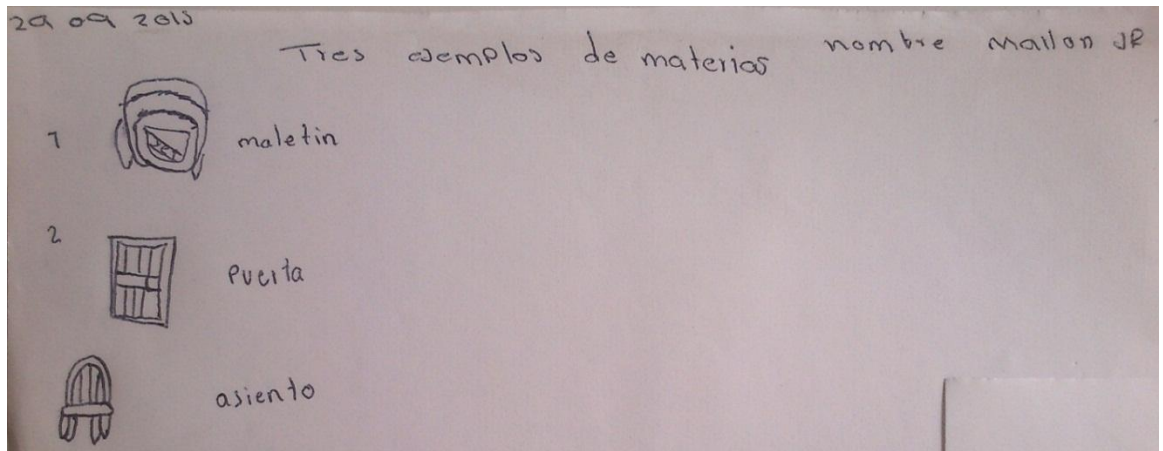 29 09 2015
Tres ejemplos de materias nombre Mailon JR
1 maletin
2 Puerta
asiento